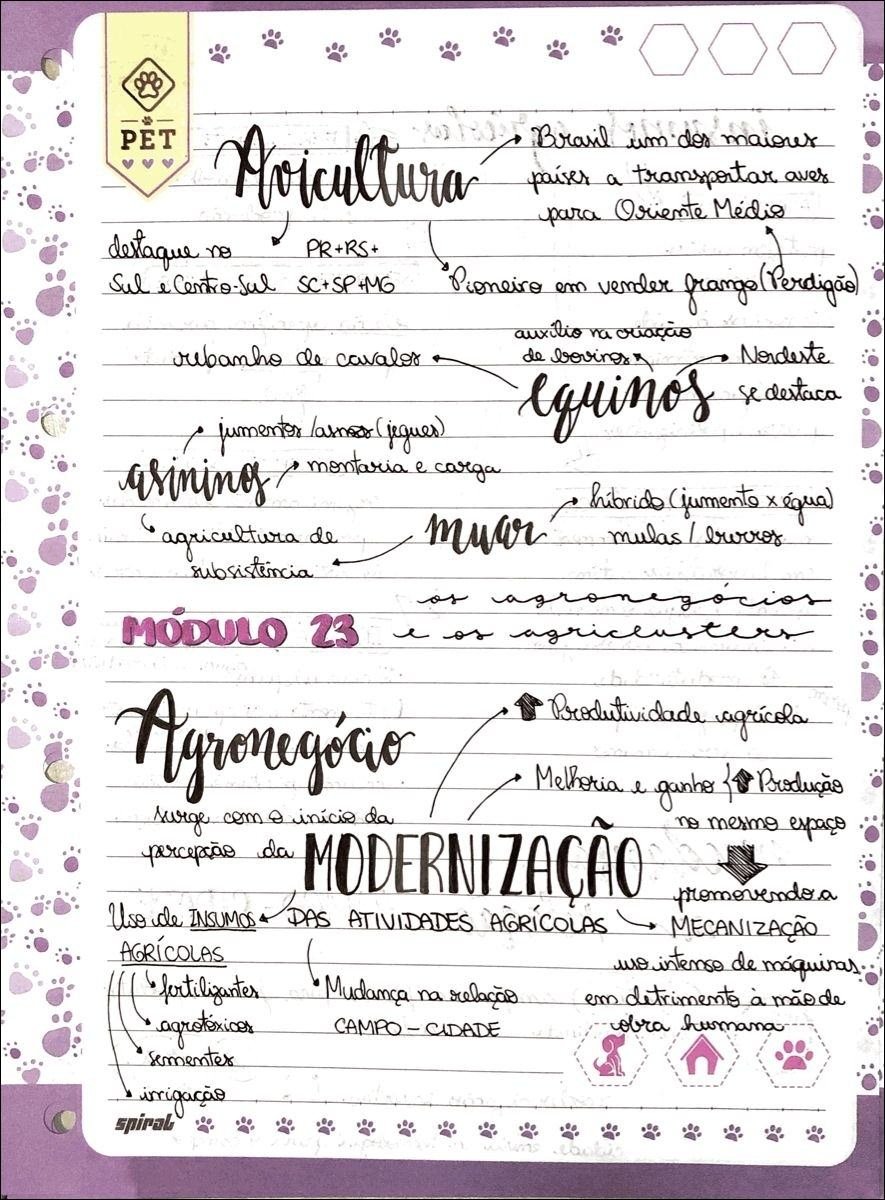 PET
Avicultura
Brasil um dos maiores
países a transportar aves
para Oriente Médio
destaque no PR+RS+
Sul e Centro-Sul SC+SP+MG
Pioneiro em vender frango (Perdigão)
auxílio na criação
de bovinos
rebanho de cavalos
Nordeste
se destaca
equinos
jumentos/asnos (jegues)
asininos
montaria e carga
híbrido (jumento x égua)
muar
mulas / burros
agricultura de
subsistência
os agronegócios
MÓDULO 23 e os agriclusters
Agronegócio
Produtividade agrícola
Melhoria e ganho { Produção
no mesmo espaço
surge com o início da
percepção da MODERNIZAÇÃO
promovendo a
Uso de INSUMOS DAS ATIVIDADES AGRÍCOLAS MECANIZAÇÃO
AGRÍCOLAS
uso intenso de máquinas
fertilizantes Mudança na relação em detrimento à mão de
agrotóxicos CAMPO - CIDADE obra humana
sementes
irrigação
spiral